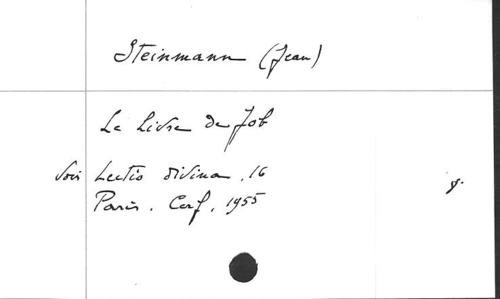 Steinmann (Jean)
Le Livre de Job
Voir Lectio divina, 16
Paris. Cerf, 1955